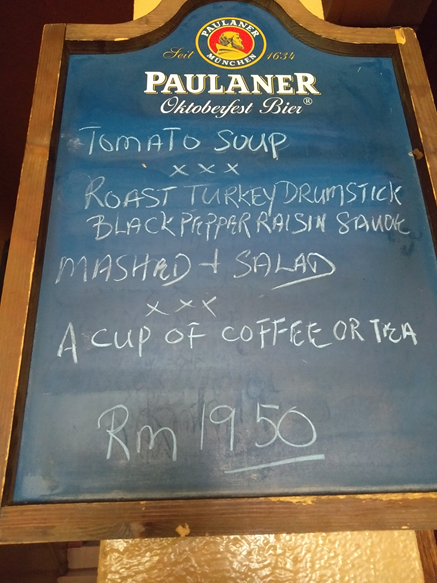 PAULANER
MÜNCHEN
Seit 1634
PAULANER
Oktoberfest Bier®
TOMATO SOUP
x x x
ROAST TURKEY DRUMSTICK
BLACK PEPPER RAISIN SAUCE
MASHED + SALAD
x x x
A CUP OF COFFEE OR TEA
Rm 19 50